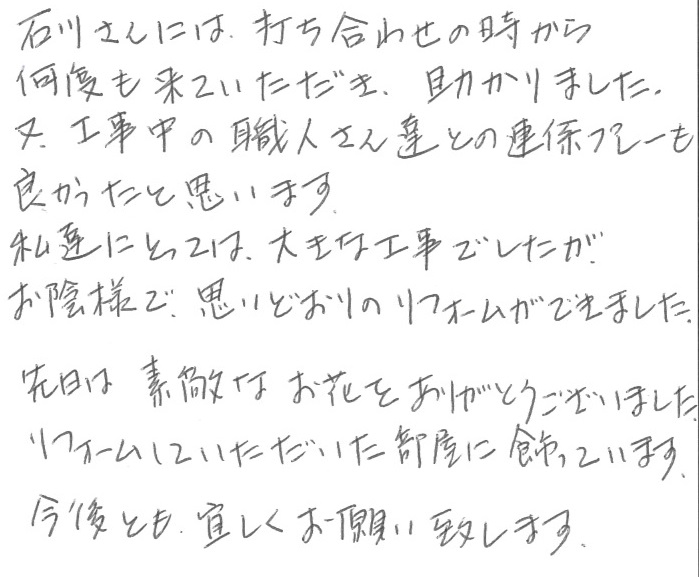 石川さんには、打ち合わせの時から
何度も来ていただき、助かりました。
又、工事中の職人さん達との連係プレーも
良かったと思います。
私達にとっては、大きな工事でしたが、
お陰様で、思いどおりのリフォームができました。
先日は素敵なお花をありがとうございました。
リフォームしていただいた部屋に飾っています。
今後とも、宜しくお願い致します。